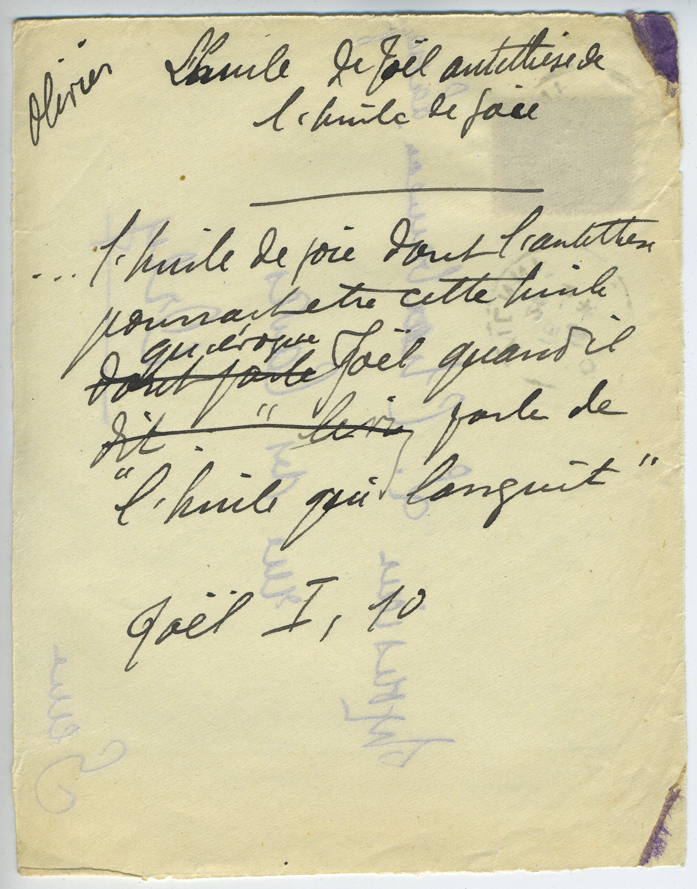 Olivier
L'huile de Joël antithèse de
l'huile de joie
... l'huile de joie dont l'antithèse
pourrait être cette huile
qu'évoque
dont parle Joël quand il
dit " parle de
"l'huile qui languit"
Joël I, 10